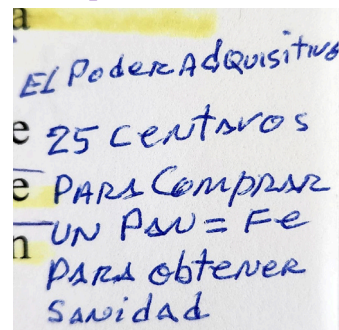 a
El Poder Adquisitivo
e 25 centavos
e PARA Comprar
n UN PAN = Fe
PARA obtener
Sanidad